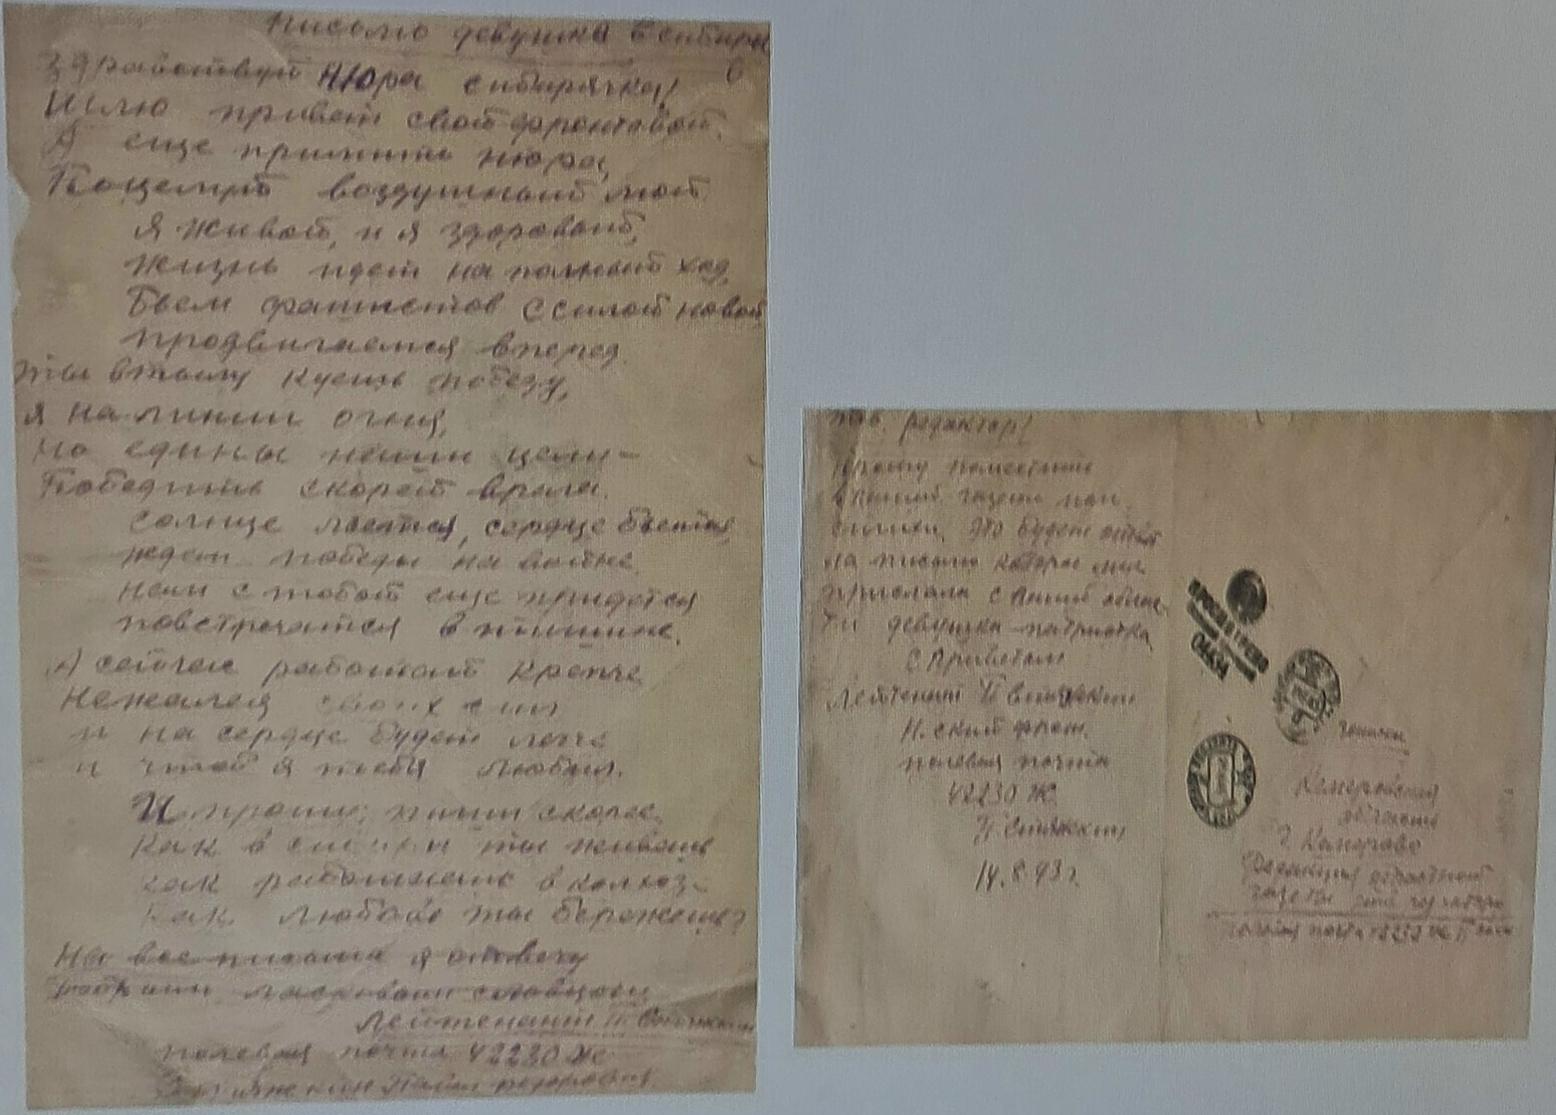 Письмо девушка в сибирь
Здравствуй Нюра сибирячка!
Шлю привет свой фронтовой.
А еще прими ты Нюра,
Поцелуй воздушный мой.
Я живой, и я здоровый,
Жизнь идет на полный ход,
Бьем фашистов с силой новой
продвигаемся вперед.
Ты в тылу куешь победу,
Я на линии огня,
Но едины наши цели-
Победить скорей врага.
Солнце льется, сердце бьется,
ждем победы на войне.
нам с тобой еще придется
повстречатся в тишине.
А сейчас работай крепче
Нежалея своих сил
и на сердце будет легче
и чтоб я тебя любил.
И прошу, пиши скорее,
Как в сибири ты живешь
как работаешь в колхоз-
Как любовь ты бережешь?
На все письма я отвечу
ласковым словцом
Лейтенант П
полевая почта 42230 Ж
Павел
тов. редактор!
Прошу поместить
в вашей газете мои
стихи. Это будет ответ
на письмо которое мне
прислала с вашей облас-
ти девушка-патриотка
С Приветом
Лейтенант П
Н.ский фрон.
полевая почта
42230 Ж
П
14.8.43 г.
ПРОСМОТРЕНО
Кемеровская
область
г. Кемерово
Редакция областной
газеты
Полевая почта 42230 Ж П